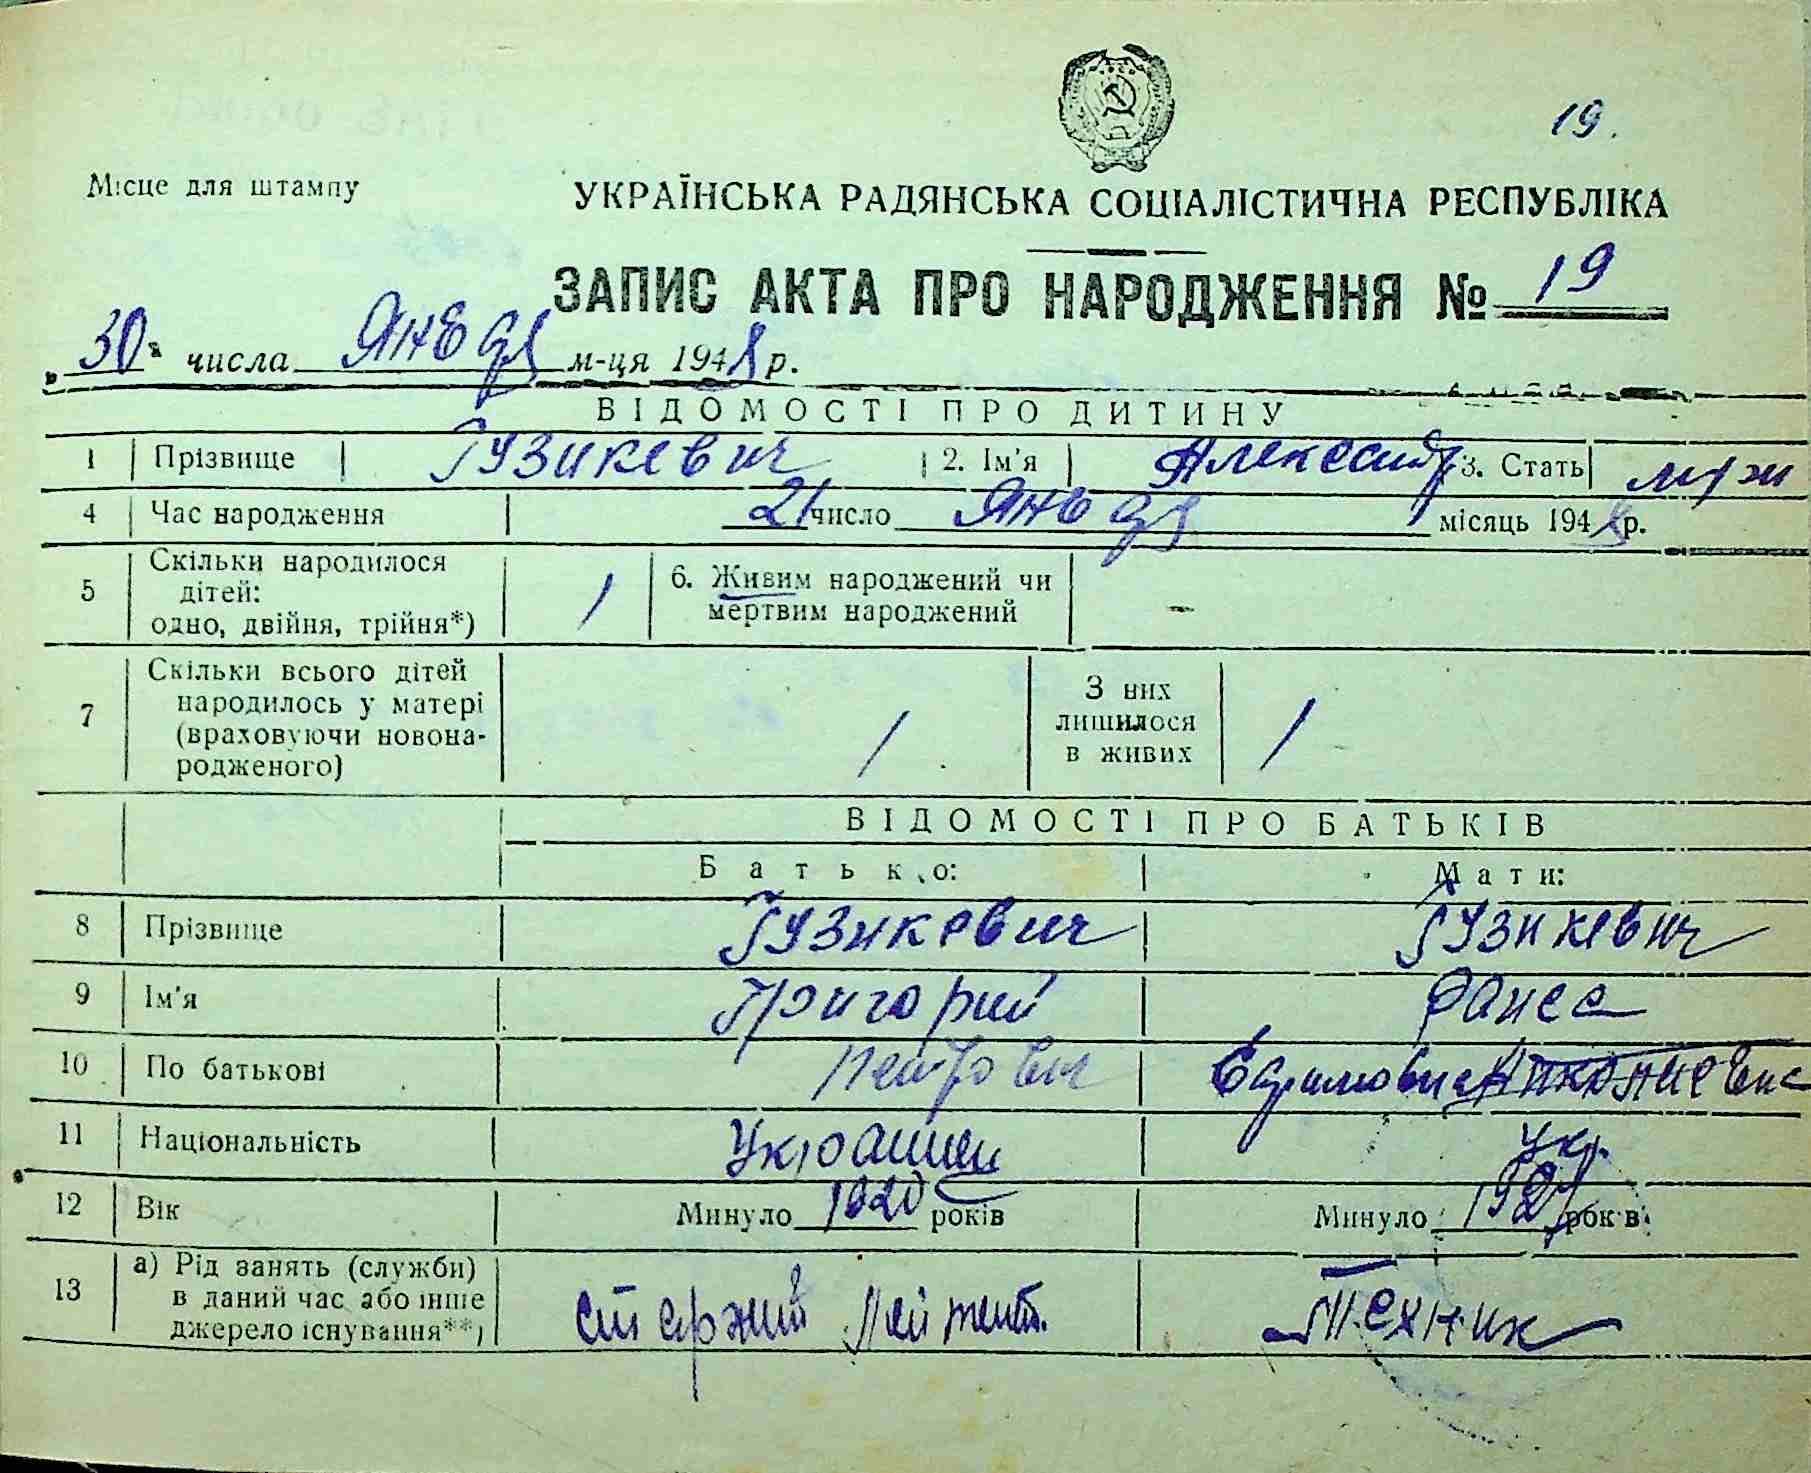 19.
Місце для штампу
УКРАЇНСЬКА РАДЯНСЬКА СОЦІАЛІСТИЧНА РЕСПУБЛІКА
ЗАПИС АКТА ПРО НАРОДЖЕННЯ № 19
„30" числа Январь м-ця 1948 р.
ВІДОМОСТІ ПРО ДИТИНУ
1 Прізвище Гузикевич 2. Ім'я Александр 3. Стать муж
4 Час народження 21 число Январь місяць 1948 р.
5 Скільки народилося дітей: одно, двійня, трійня*) 1 6. Живим народжений чи мертвим народжений -
7 Скільки всього дітей народилось у матері (враховуючи новонародженого) 1 З них лишилося в живих 1
ВІДОМОСТІ ПРО БАТЬКІВ
Батько: Мати:
8 Прізвище Гузикевич Гузикевич
9 Ім'я Григорий Раиса
10 По батькові Петрович Ефимовна
11 Національність Украинец Укр.
12 Вік Минуло 1920 років Минуло років
13 а) Рід занять (служби) в даний час або інше джерело існування**) старший лейтент. Техник